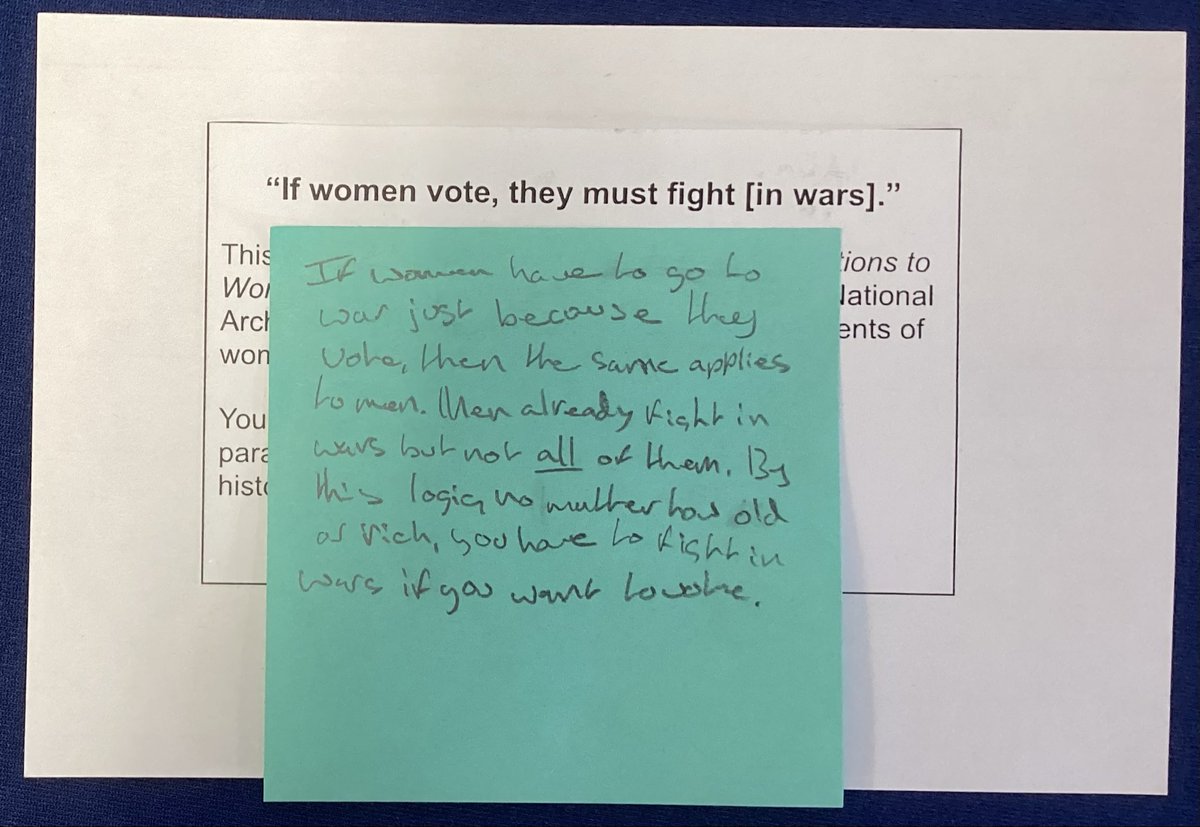 “If women vote, they must fight [in wars].”
This
Wor
Arch
won
You
para
histo
tions to
National
ents of
If women have to go to
war just because they
vote, then the same applies
to men. Men already fight in
wars but not all of them. By
this logic, no matter how old
or rich, you have to fight in
wars if you want to vote.